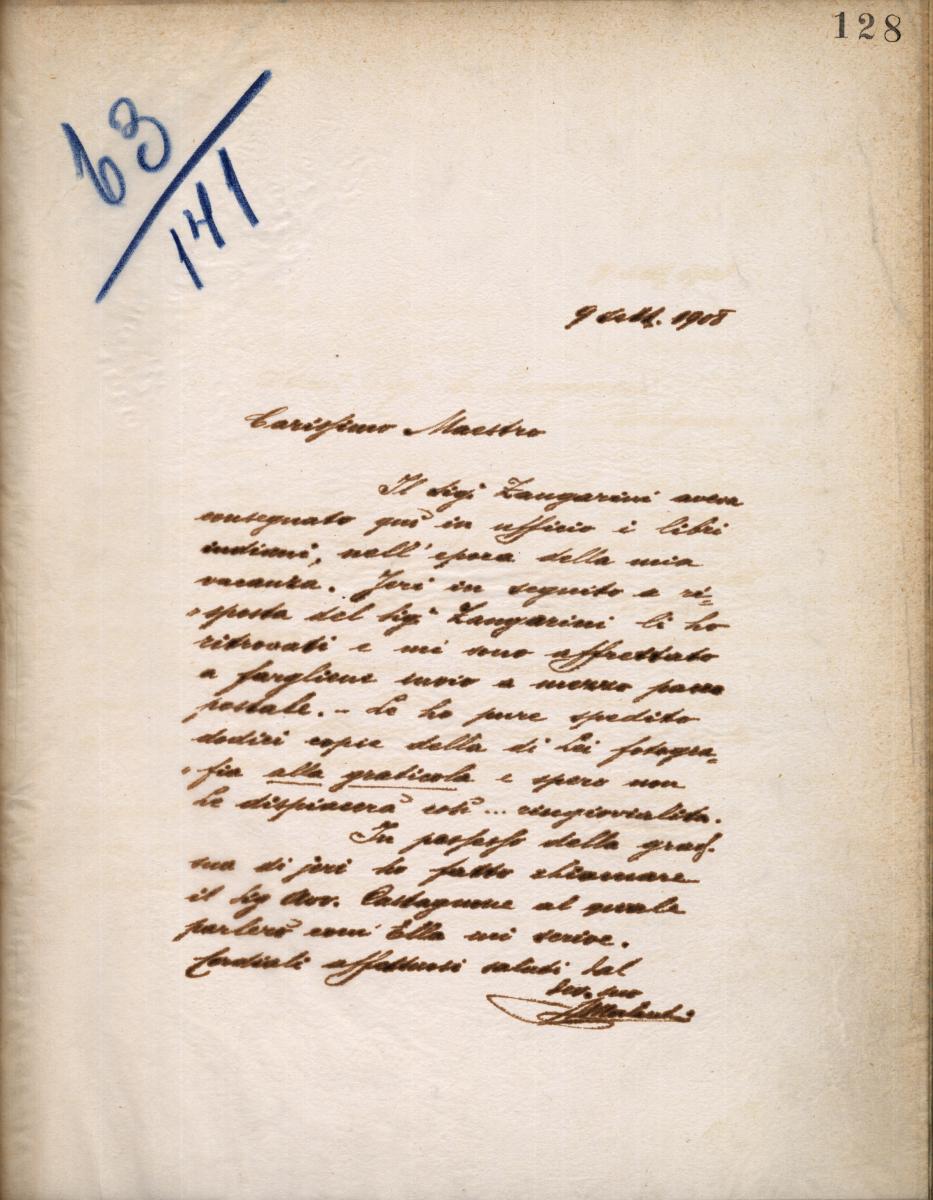 128
63/141
9 sett. 1908
Carissimo Maestro
Il Sigr Zangarini aveva
consegnato quì in ufficio i libri
indiani, nell'epoca della mia
vacanza. Jeri in seguito a ri=
=sposta del Sigr Zangarini li ho
ritrovati e mi sono affrettato
a fargliene invio a mezzo pacco
postale. - Le ho pure spedito
dodici copie della di Lei fotogra=
=fia alla graticola e spero non
Le dispiacerà così ... ringiovialita.
In possesso della grad.
sua di jeri ho fatto chiamare
il Sig Avv. Castagnone al quale
parlerò com' Ella mi scrive.
Cordiali affettuosi saluti dal
dev. suo